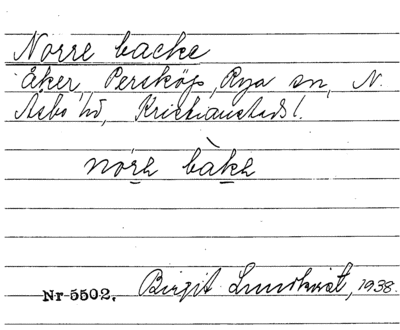 Norre backe
Åker, Persköp, Rya sn, N.
Åsbo hd, Kristianstads l.
nórh bàkh
Nr 5502. Birgit Lundkvist, 1938.